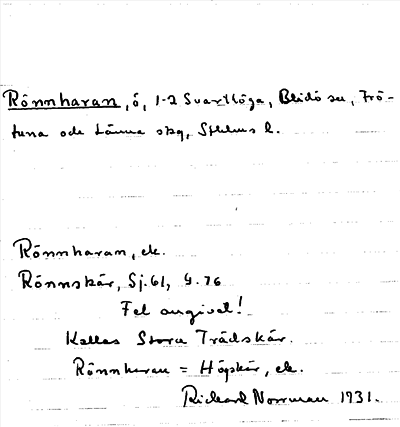 Rönnharan, ö, 1-2 Svartlöga, Blidö sn, Frö-
tuna och Länna skg, Sthlms l.
Rönnharan, ek.
Rönnskär, Sj.61, G.76
Fel angivet!
Kallas Stora Trädskär.
Rönnharan = Högskär, ek.
Rickard Norrman 1931.